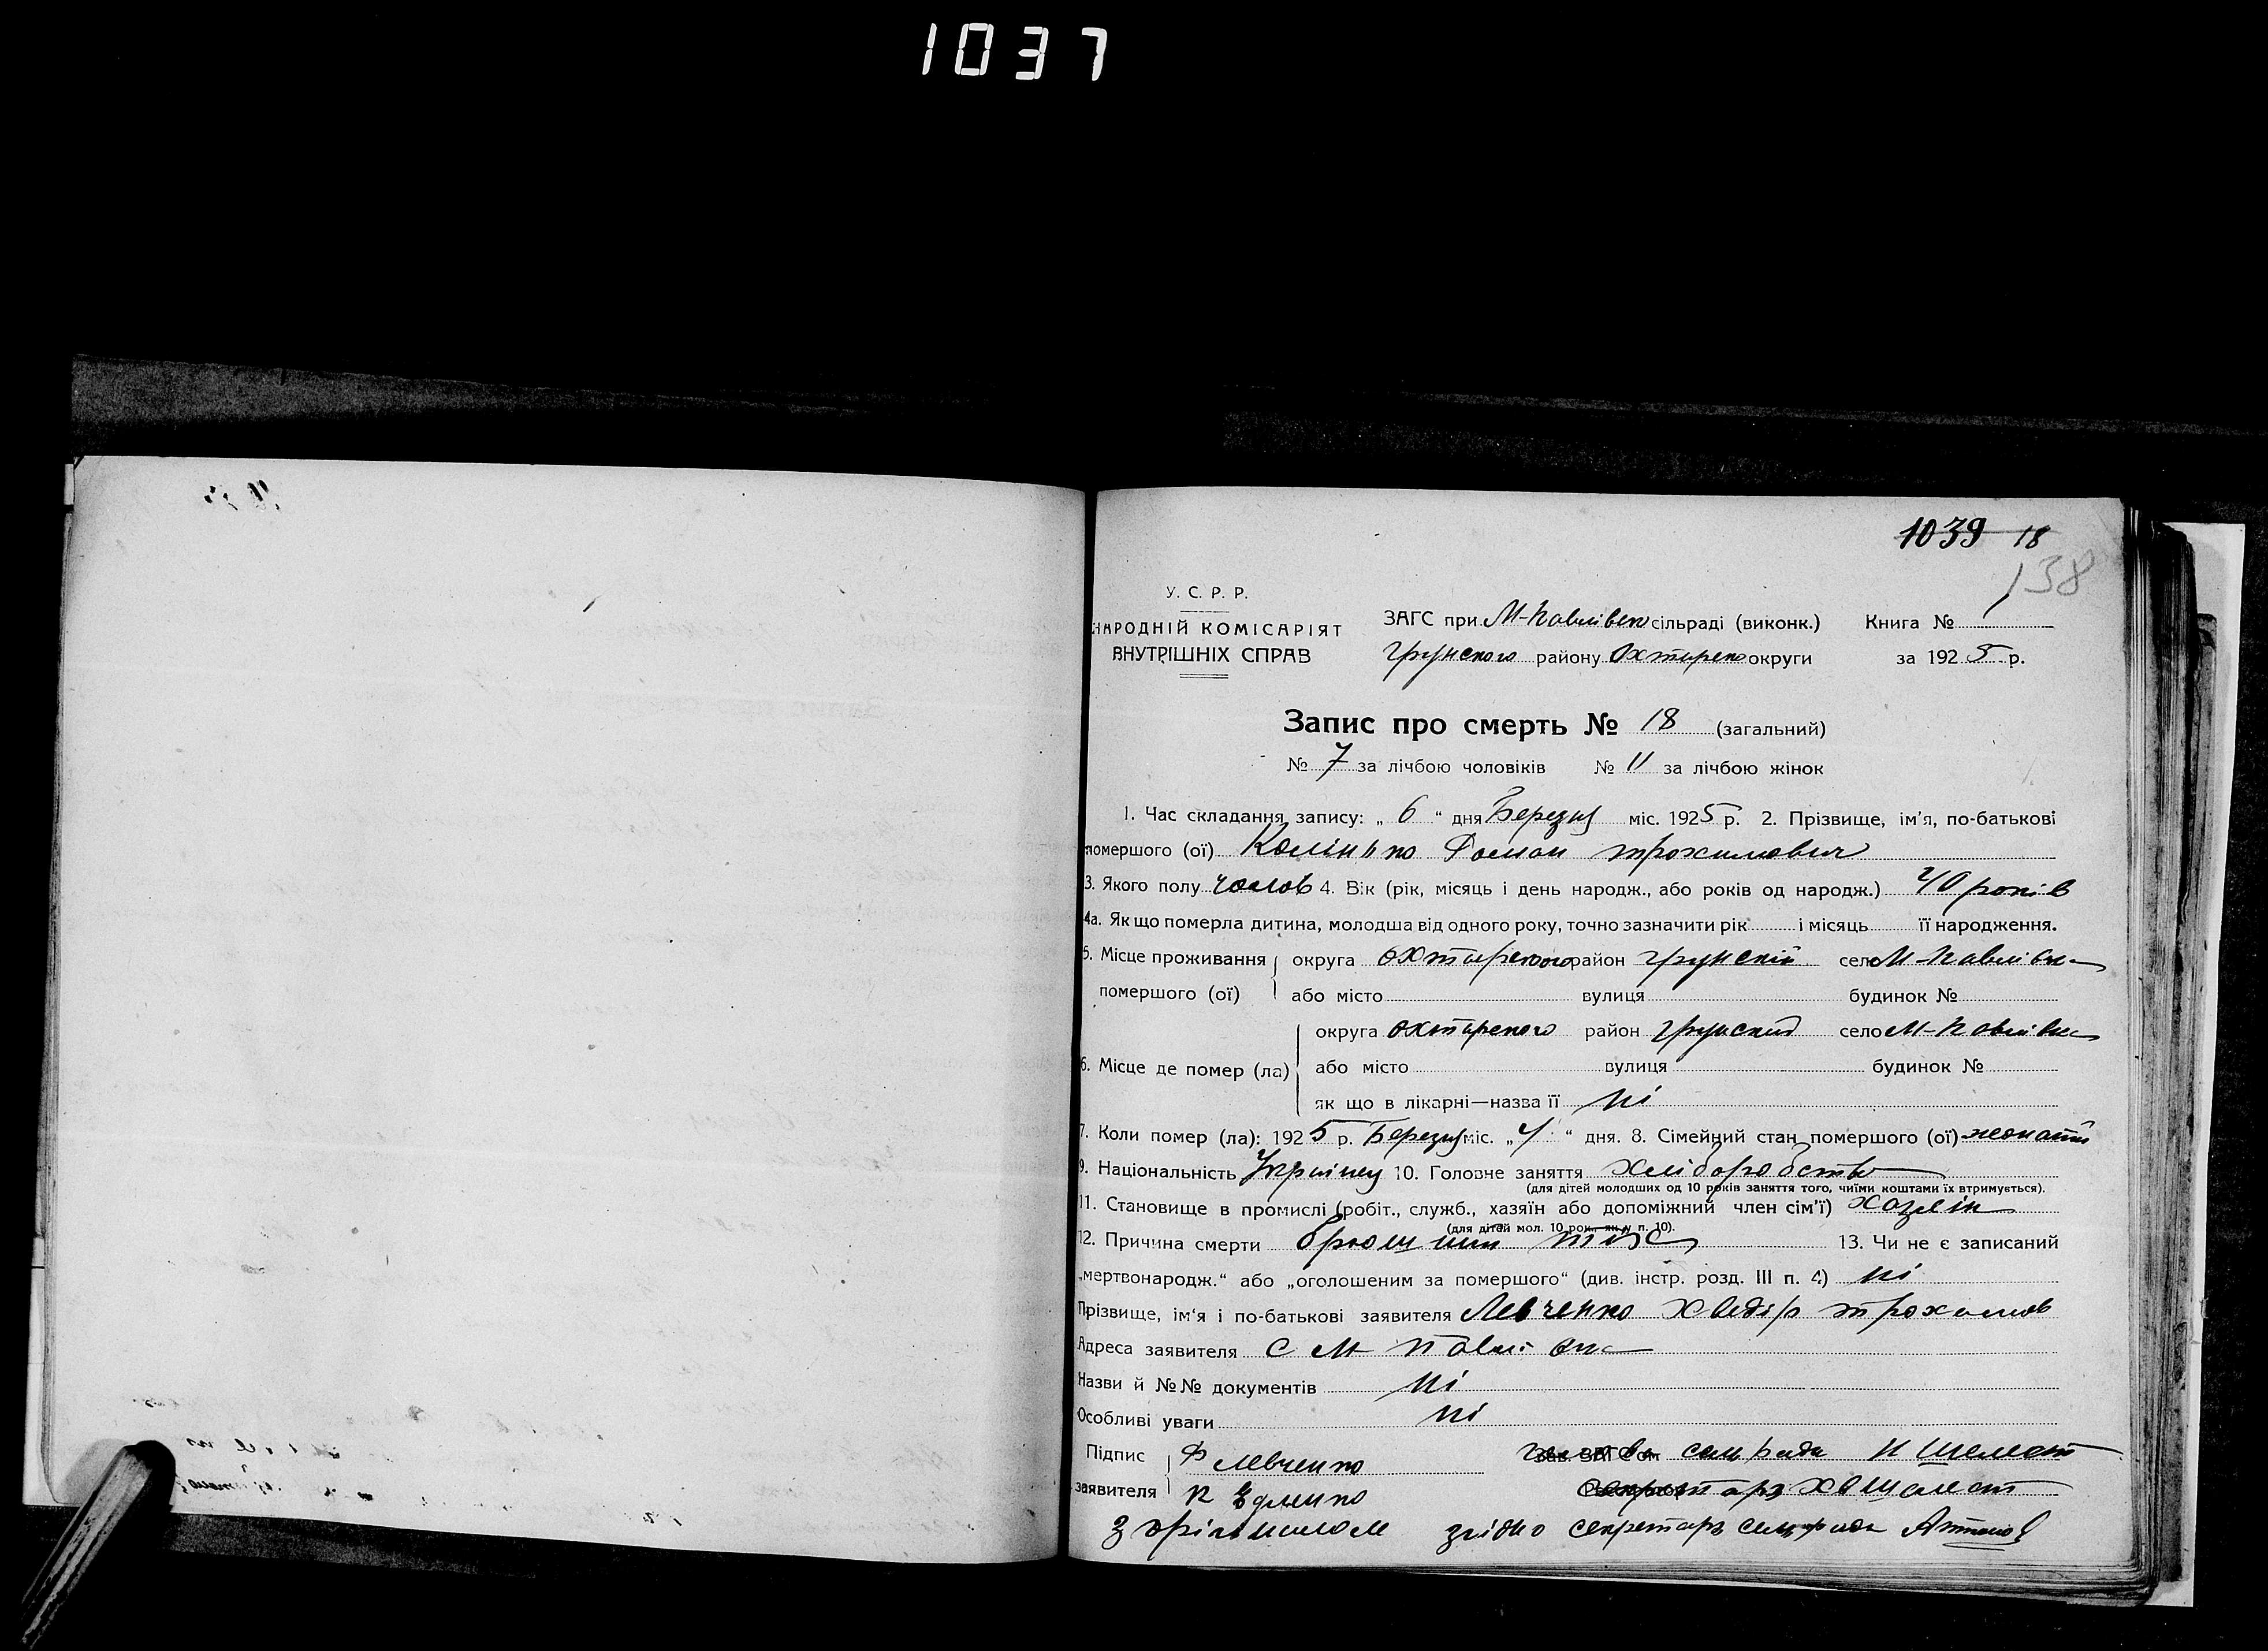 1037
1039 18
138
У. С. Р. Р.
НАРОДНІЙ КОМІСАРІЯТ
ВНУТРІШНІХ СПРАВ
ЗАГС при М-Павлівск сільраді (виконк.) Книга № 1
Грунского району Охтирско округи за 1925 р.
Запис про смерть № 18 (загальний)
№ 7 за лічбою чоловіків № 11 за лічбою жінок
1. Час складання запису: „ 6 “ дня Березня міс. 1925 р. 2. Прізвище, ім'я, по-батькові
помершого (ої) Роман Трохимович
3. Якого полу чолов 4. Вік (рік, місяць і день народж., або років од народж.) 40 років
4а. Як що померла дитина, молодша від одного року, точно зазначити рік і місяць її народження.
5. Місце проживання округа Охтирского район Грунский село М-Павлівка
помершого (ої) або місто вулиця будинок №
округа Охтирского район Грунский село М-Павлівка
6. Місце де помер (ла) або місто вулиця будинок №
як що в лікарні—назва її ні
7. Коли помер (ла): 1925 р. Березня міс. „ 4 “ дня. 8. Сімейний стан помершого (ої) жонатий
9. Національність Українец 10. Головне заняття хліборобство
(для дітей молодших од 10 років заняття того, чиїми коштами їх втримується).
11. Становище в промислі (робіт., служб., хазяїн або допоміжний член сім'ї) хазяін
(для дітей мол. 10 рок., як у п. 10).
12. Причина смерти брюшний тиф 13. Чи не є записаний
„мертвонародж.“ або „оголошеним за помершого“ (див. інстр. розд. III п. 4) ні
Прізвище, ім'я і по-батькові заявителя Левченко Хведір Трохимов
Адреса заявителя с М Павлівка
Назви й №№ документів ні
Особливі уваги ні
Підпис Ф Левченко Зав. ЗАГС'ом голова сельради Н Шелест
заявителя К секретарь Шелест
З орігіналом згідно секретарь сельради